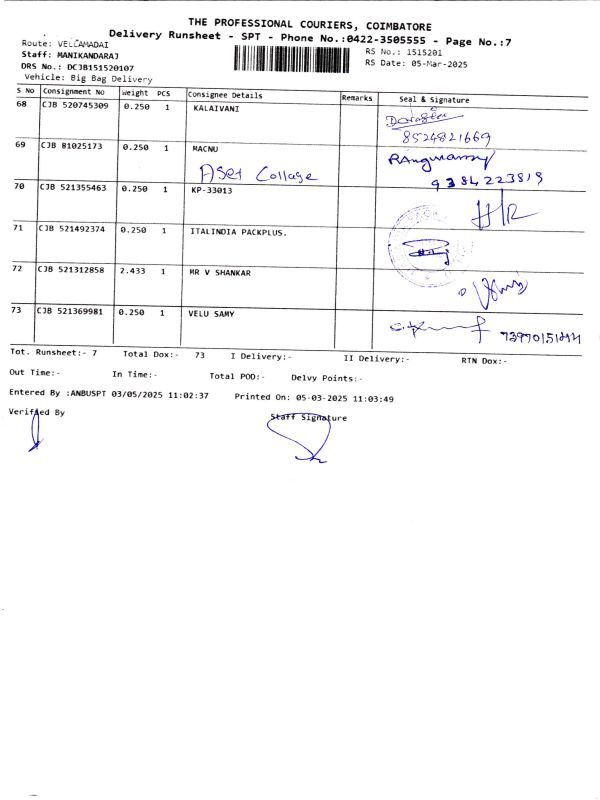 THE PROFESSIONAL COURIERS, COIMBATORE
Delivery Runsheet - SPT - Phone No.:0422-3505555 - Page No.:7
Route: VELLAMADAI
Staff: MANIKANDARAJ
DRS No.: DCJB151520107
Vehicle: Big Bag Delivery
RS No.: 1515201
RS Date: 05-Mar-2025
S No Consignment No Weight PCS Consignee Details Remarks Seal & Signature
68 CJB 520745309 0.250 1 KALAIVANI
8524821669
69 CJB 81025173 0.250 1 MACNU
ASet Collage
9384223819
70 CJB 521355463 0.250 1 KP-33013
71 CJB 521492374 0.250 1 ITALINDIA PACKPLUS.
72 CJB 521312858 2.433 1 MR V SHANKAR
73 CJB 521369981 0.250 1 VELU SAMY
Tot. Runsheet:- 7 Total Dox:- 73 I Delivery:- II Delivery:- RTN Dox:-
Out Time:- In Time:- Total POD:- Delvy Points:-
Entered By :ANBUSPT 03/05/2025 11:02:37 Printed On: 05-03-2025 11:03:49
Verified By Staff Signature